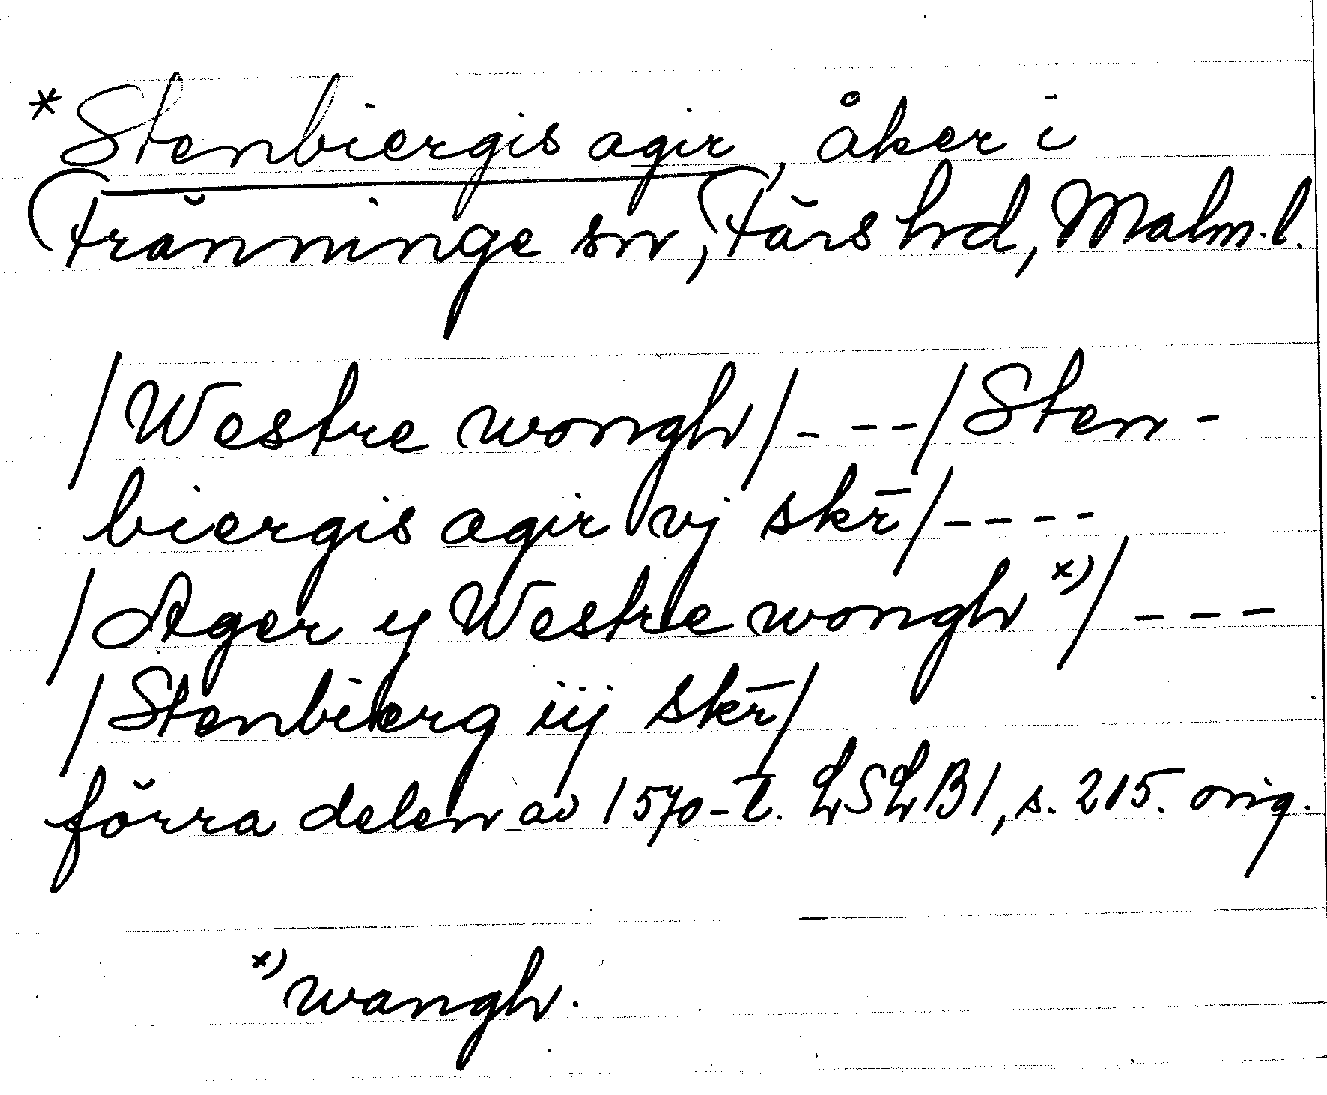 *Stenbiergis agir, åker i
Tränninge sn, Färs hrd, Malm. l.
/Westre wongh/ - - - -/Sten-
biergis agir vj skr̄/ - - - -
/Ager y Westre wongh x)/ - - -
/Stenbierg iij skr̄/
förra delen av 1570-t. LSLB1, s. 215. orig.
x) wangh.